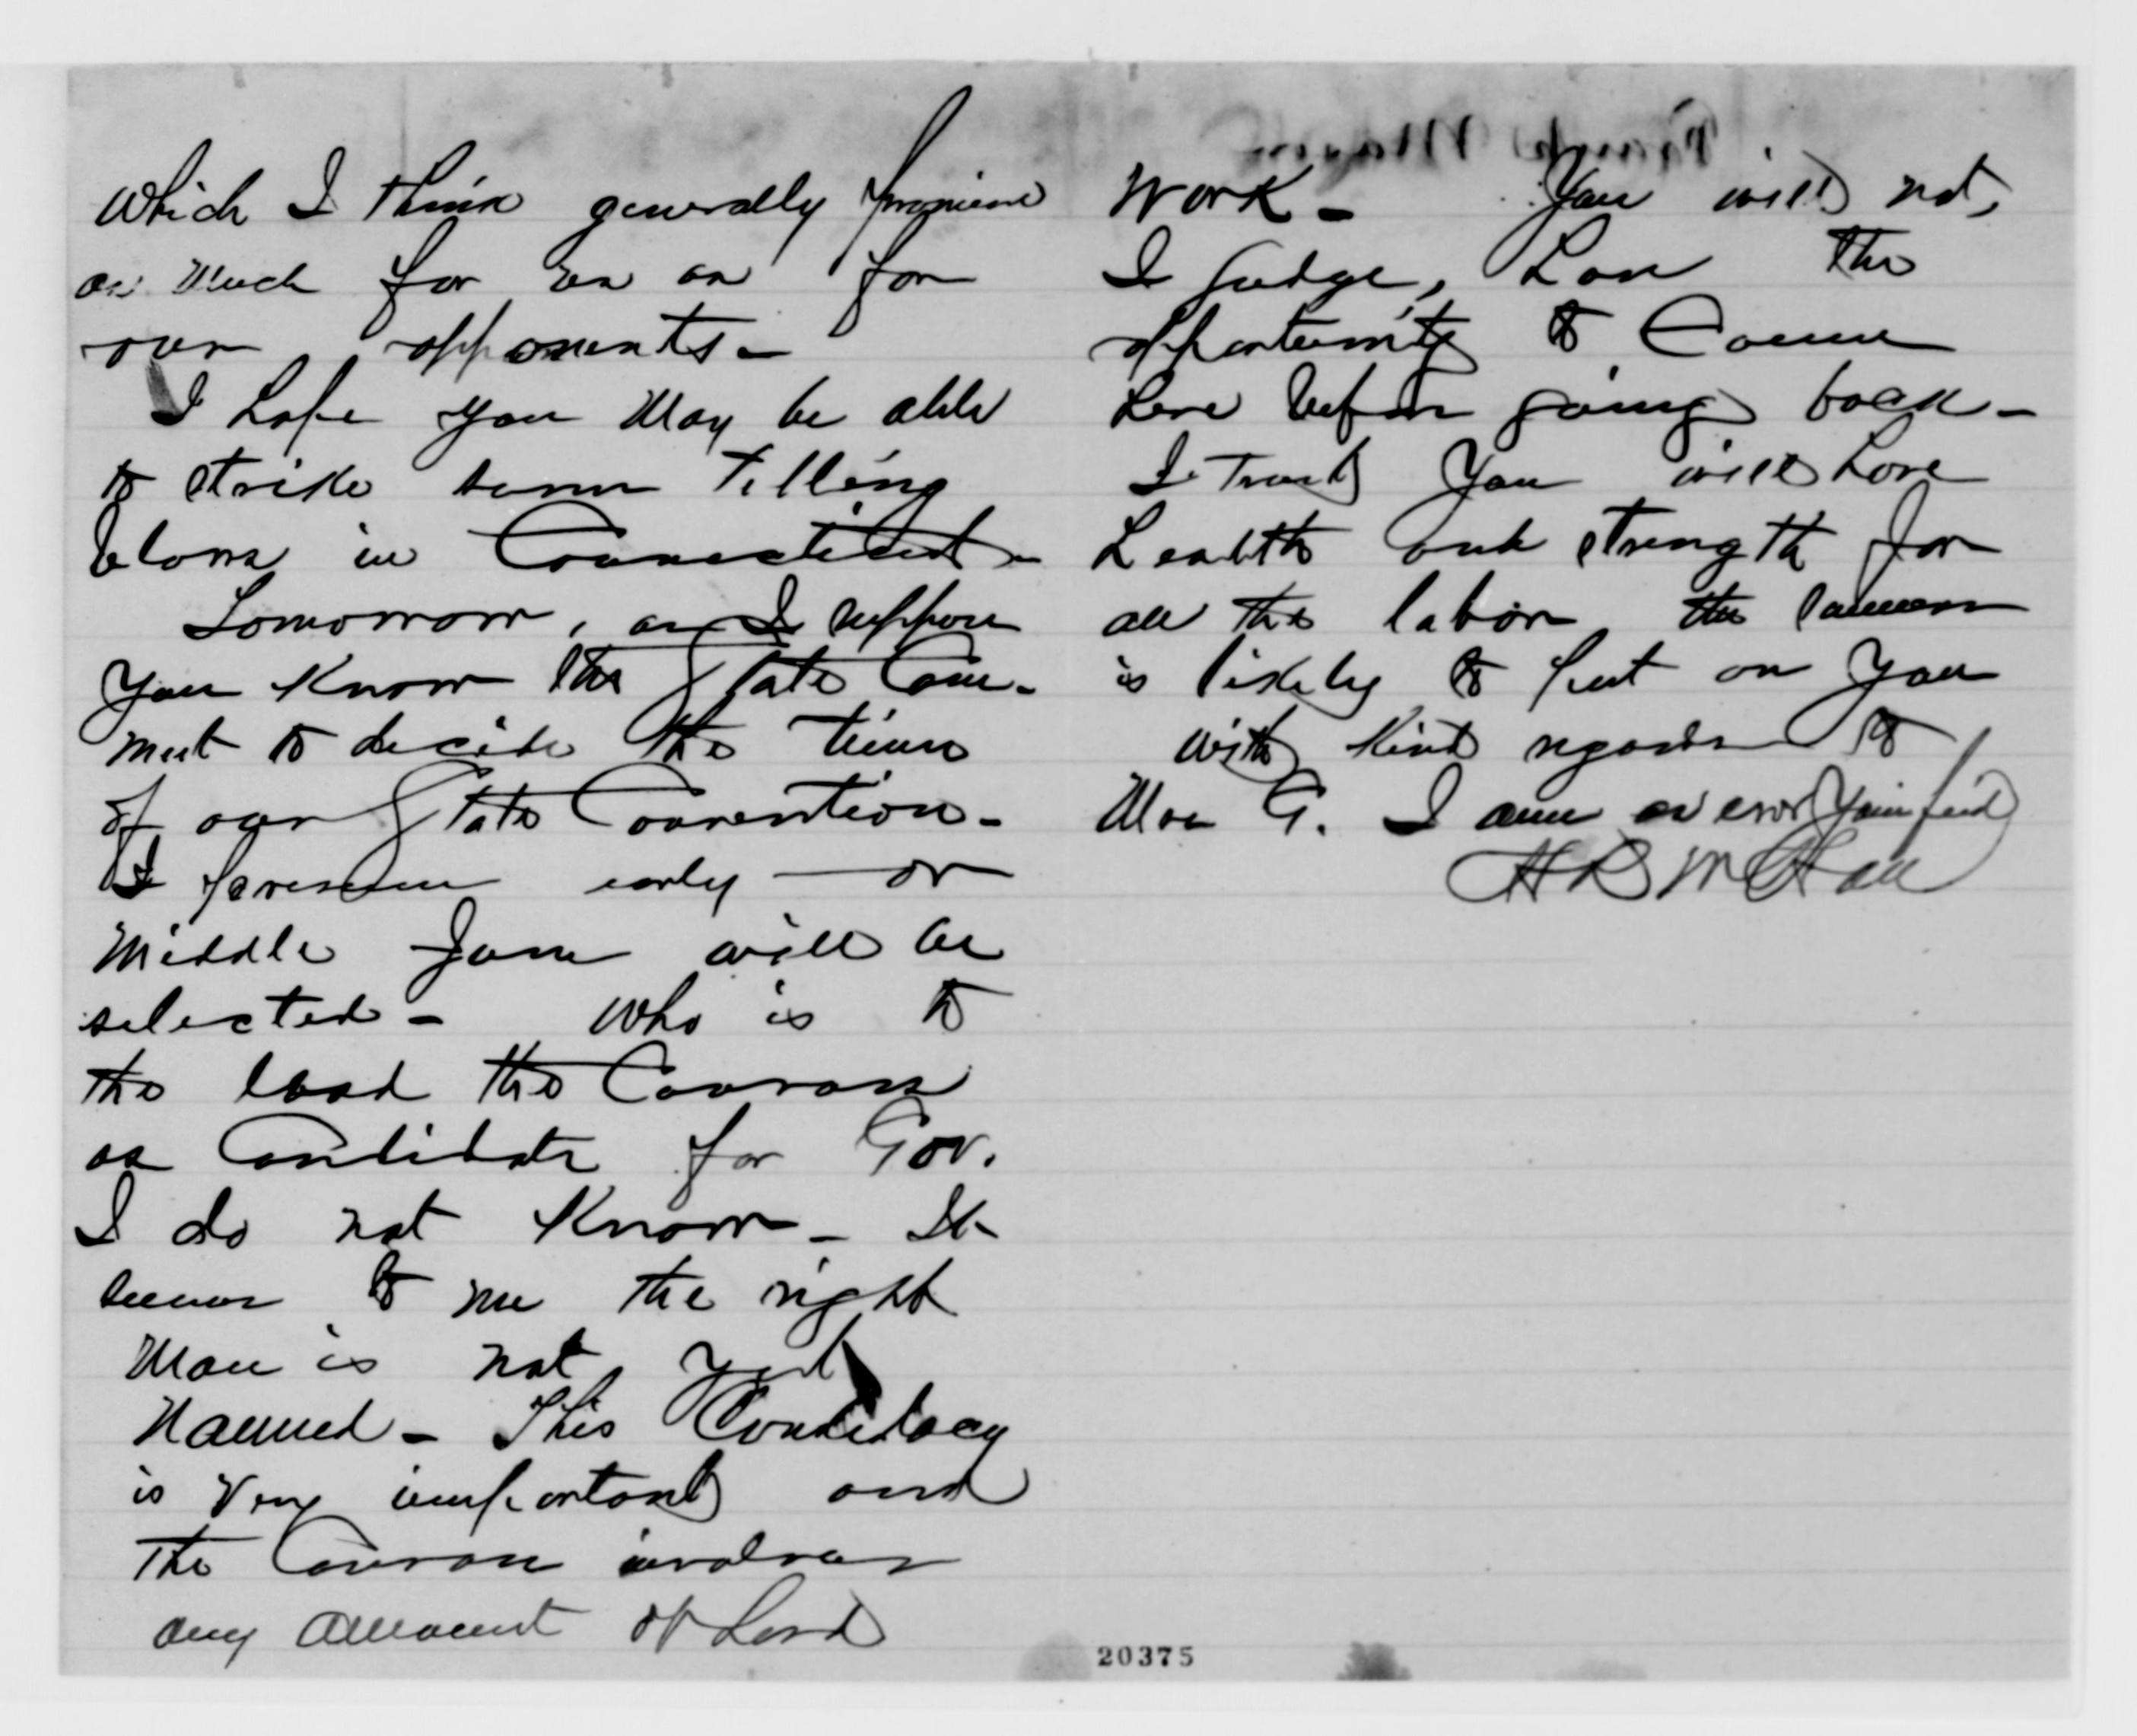 which I think generally promise
as much for us as for
our opponents -
I hope you may be able
to strike some telling
blows in Connecticut -
Tomorrow, as I suppose
you know the State Com.
meet to decide the time
of our State Convention -
I presume early - or
middle June will be
selected - who is to
the lead the Canvass
as Candidate for Gov.
I do not know - It
seems to me the right
man is not yet
named - This Candidacy
is very important and
the Canvass involves
any amount of hard
work - You will not,
I judge, have the
opportunity to come
here before going back -
I trust you will have
health and strength for
all the labor the canvass
is likely to put on you
with kind regards to
Mrs G. I am as ever your friend
20375